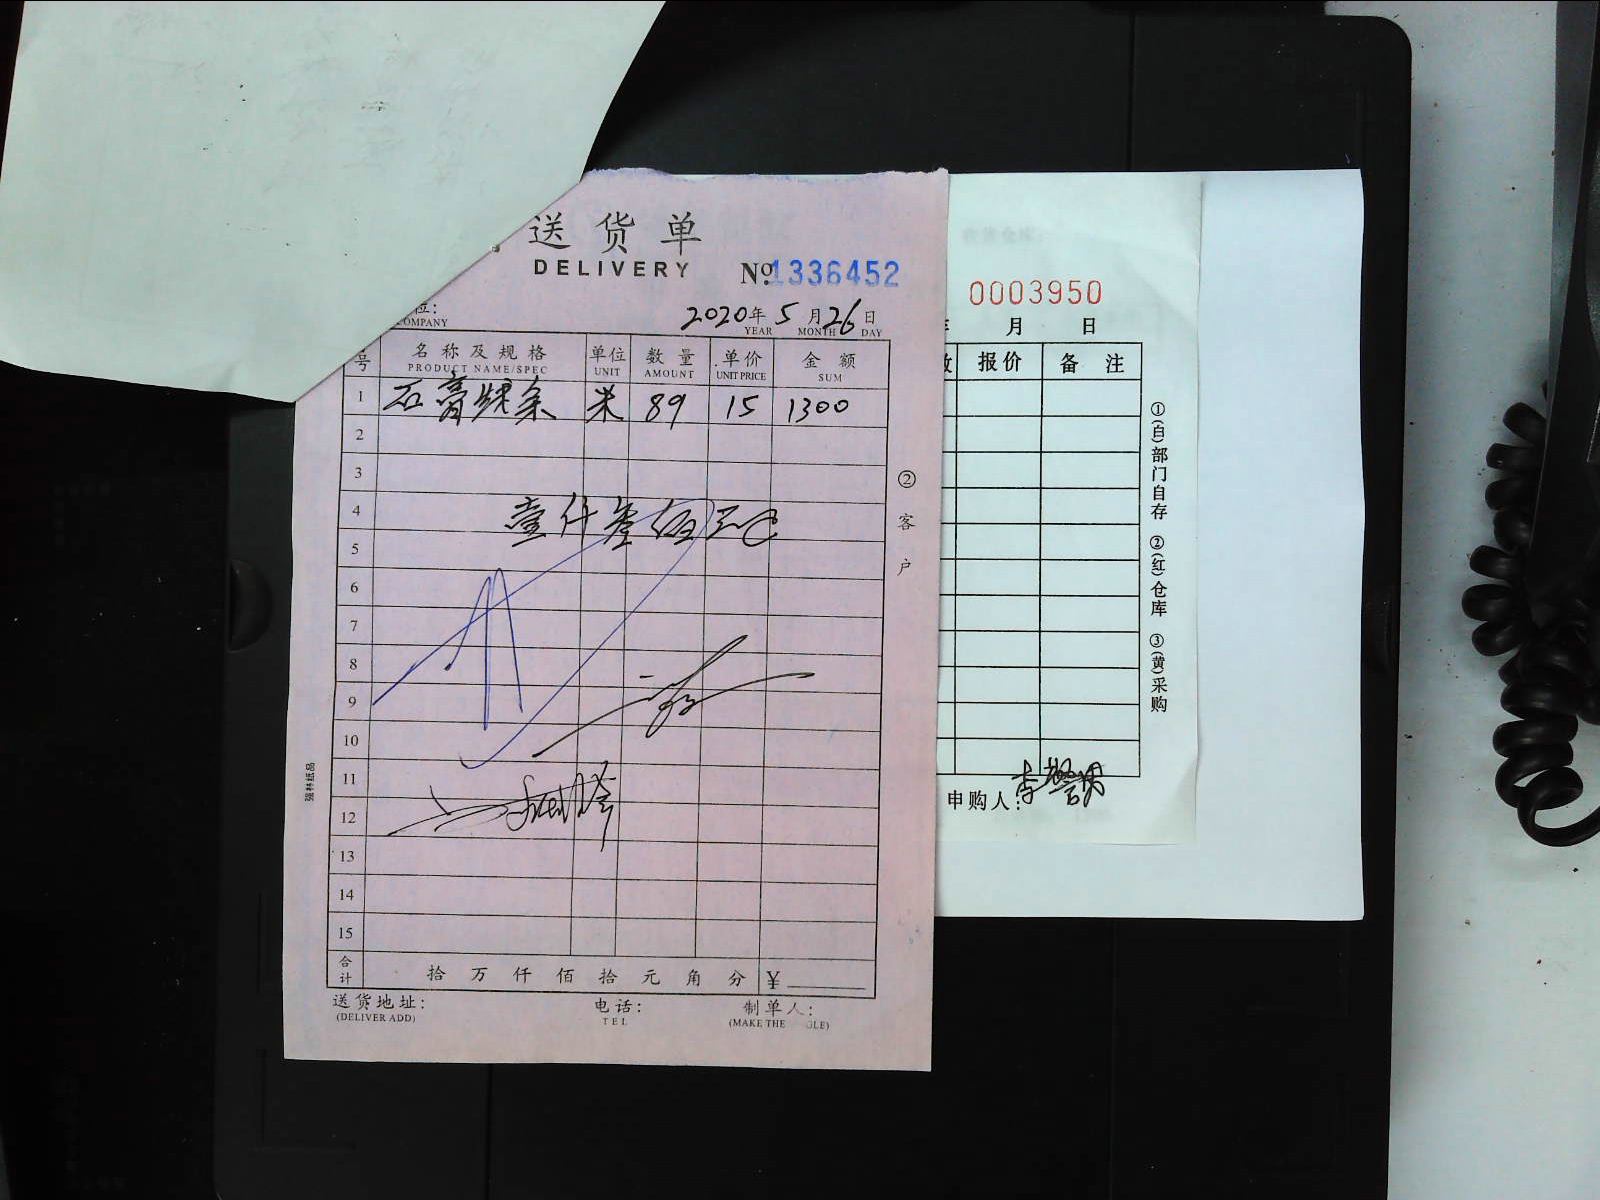 送货单
DELIVERY
No. 1336452
位:
COMPANY
2020年 5月 26日
YEAR MONTH DAY
号 名称及规格 单位 数量 单价 金额
PRODUCT NAME/SPEC UNIT AMOUNT UNIT PRICE SUM
1 石膏线条 米 89 15 1300
2
3
4 壹仟叁佰元
5
6
7
8
9
10
11
12
13
14
15
合计 拾 万 仟 佰 拾 元 角 分 ¥
送货地址: 电话: 制单人:
(DELIVER ADD) TEL (MAKE THE
②客户
强林纸品
0003950
年 月 日
报价 备注
①(白)部门自存 ②(红)仓库 ③(黄)采购
申购人: